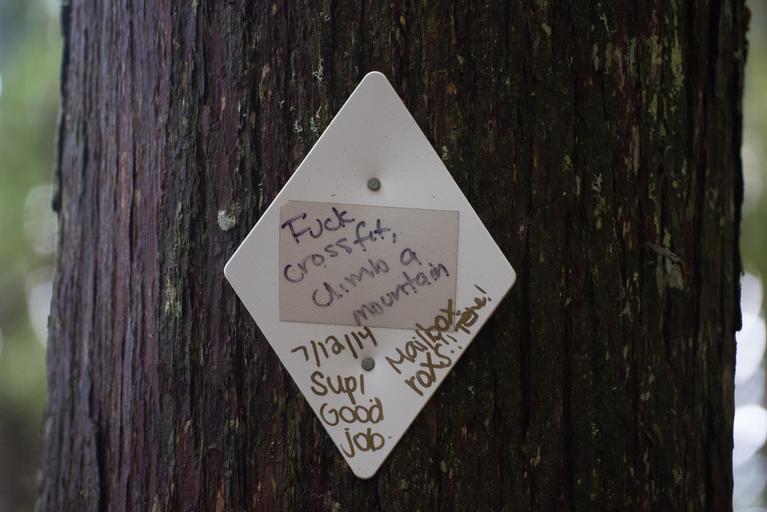 Fuck
crossfit,
climb a
mountain
7/12/14
Sup!
Good
job
Mailbox
roxs!! Tehe!